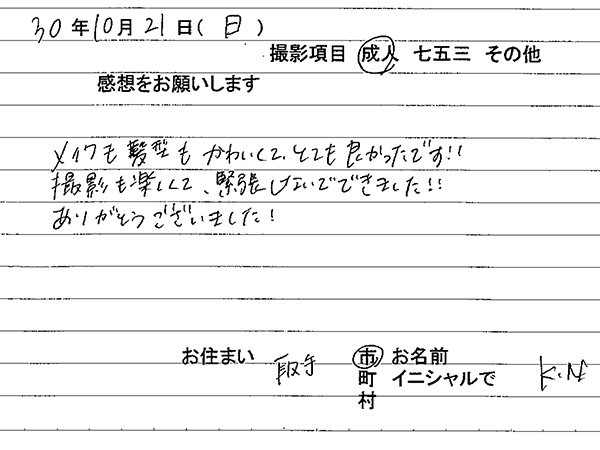 30年10月21日(日)
撮影項目 成人 七五三 その他
感想をお願いします
メイクも髪型もかわいくて、とても良かったです!!
撮影も楽しくて、緊張しないでできました!!
ありがとうございました!
お住まい 取手 市 お名前
町 イニシャルで K.N
村